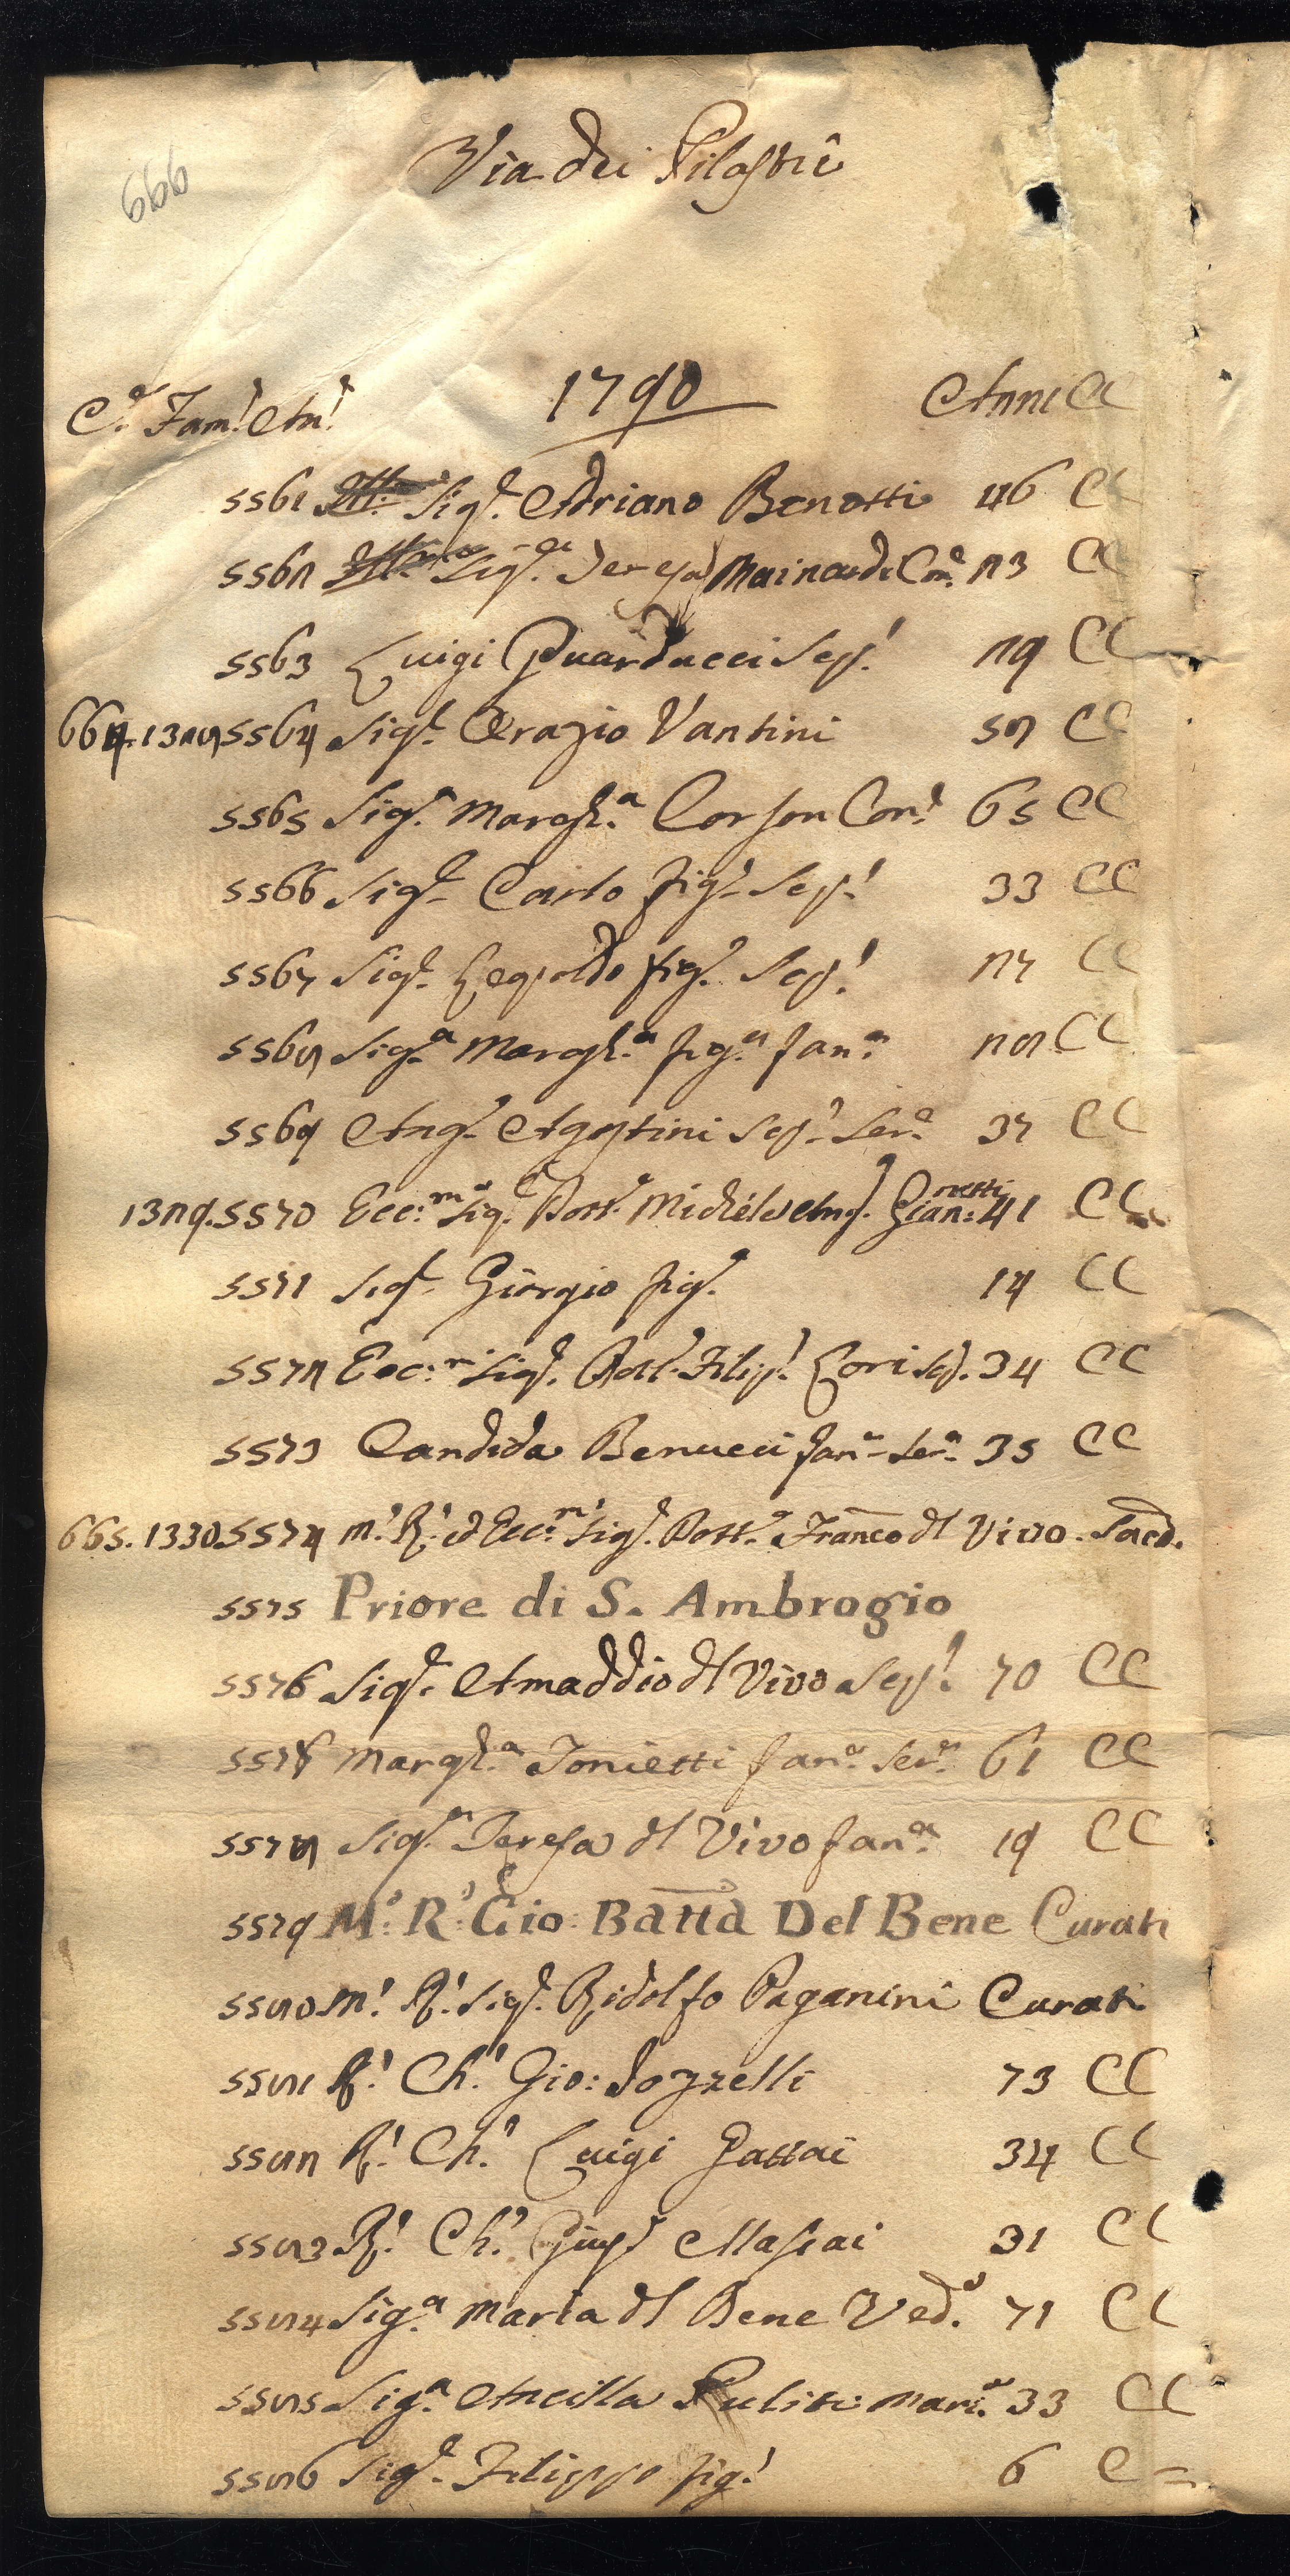 Via dei Pilastri
666
1790
C.e Fam! An! Anni CC
5561 Sig.r Adriano Benotti 46 CC
5562 Sig.ra Teresa Mainardi Con.e 23 CC
5563 Luigi Guarducci Sep! 29 CC
664. 1328 5564 Sig.r Orazio Vantini 58 CC
5565 Sig.a Margh.a Corson Con.e 65 CC
5566 Sig.r Carlo fig.o Sep! 33 CC
5567 Sig.r Leopoldo fig.o Sep! 27 CC
5568 Sig.a Margh.a fig.a fan.a 28 CC
5569 Ang.o Agostini Sep! Ser.e 37 CC
1329. 5570 Ecc:mo Sig.r Dott.e Michele Ang. Gian:netti 41 CC
5571 Sig.r Giorgio fig.o 14 CC
5572 Ecc:mo Sig.r Dott. Filip! Lori Sep. 34 CC
5573 Candida Benucci fan.a Ser.a 35 CC
665. 1330. 5574 M! R! ed Ecc:mo Sig.r Dott.e Franco del Vivo. Sacd.
5575 Priore di S. Ambrogio
5576 Sig.r Amaddio del Vivo Sep! 70 CC
5577 Margh.a Tonietti fan.a Ser.a 61 CC
5578 Sig.a Teresa del Vivo fan.a 19 CC
5579 M:o R:o Gio: Batta Del Bene Curati
5580 M! R! Sig.r Ridolfo Paganini Curati
5581 R! Ch! Gio: Pozzelli 73 CC
5582 R! Ch! Luigi Gattai 34 CC
5583 R! Ch! Giup.e Masiai 31 CC
5584 Sig.a Maria del Bene Ved.a 71 CC
5585 Sig.a Ancilla Puliti Mari.a 33 CC
5586 Sig.r Filippo fig! 6 C=